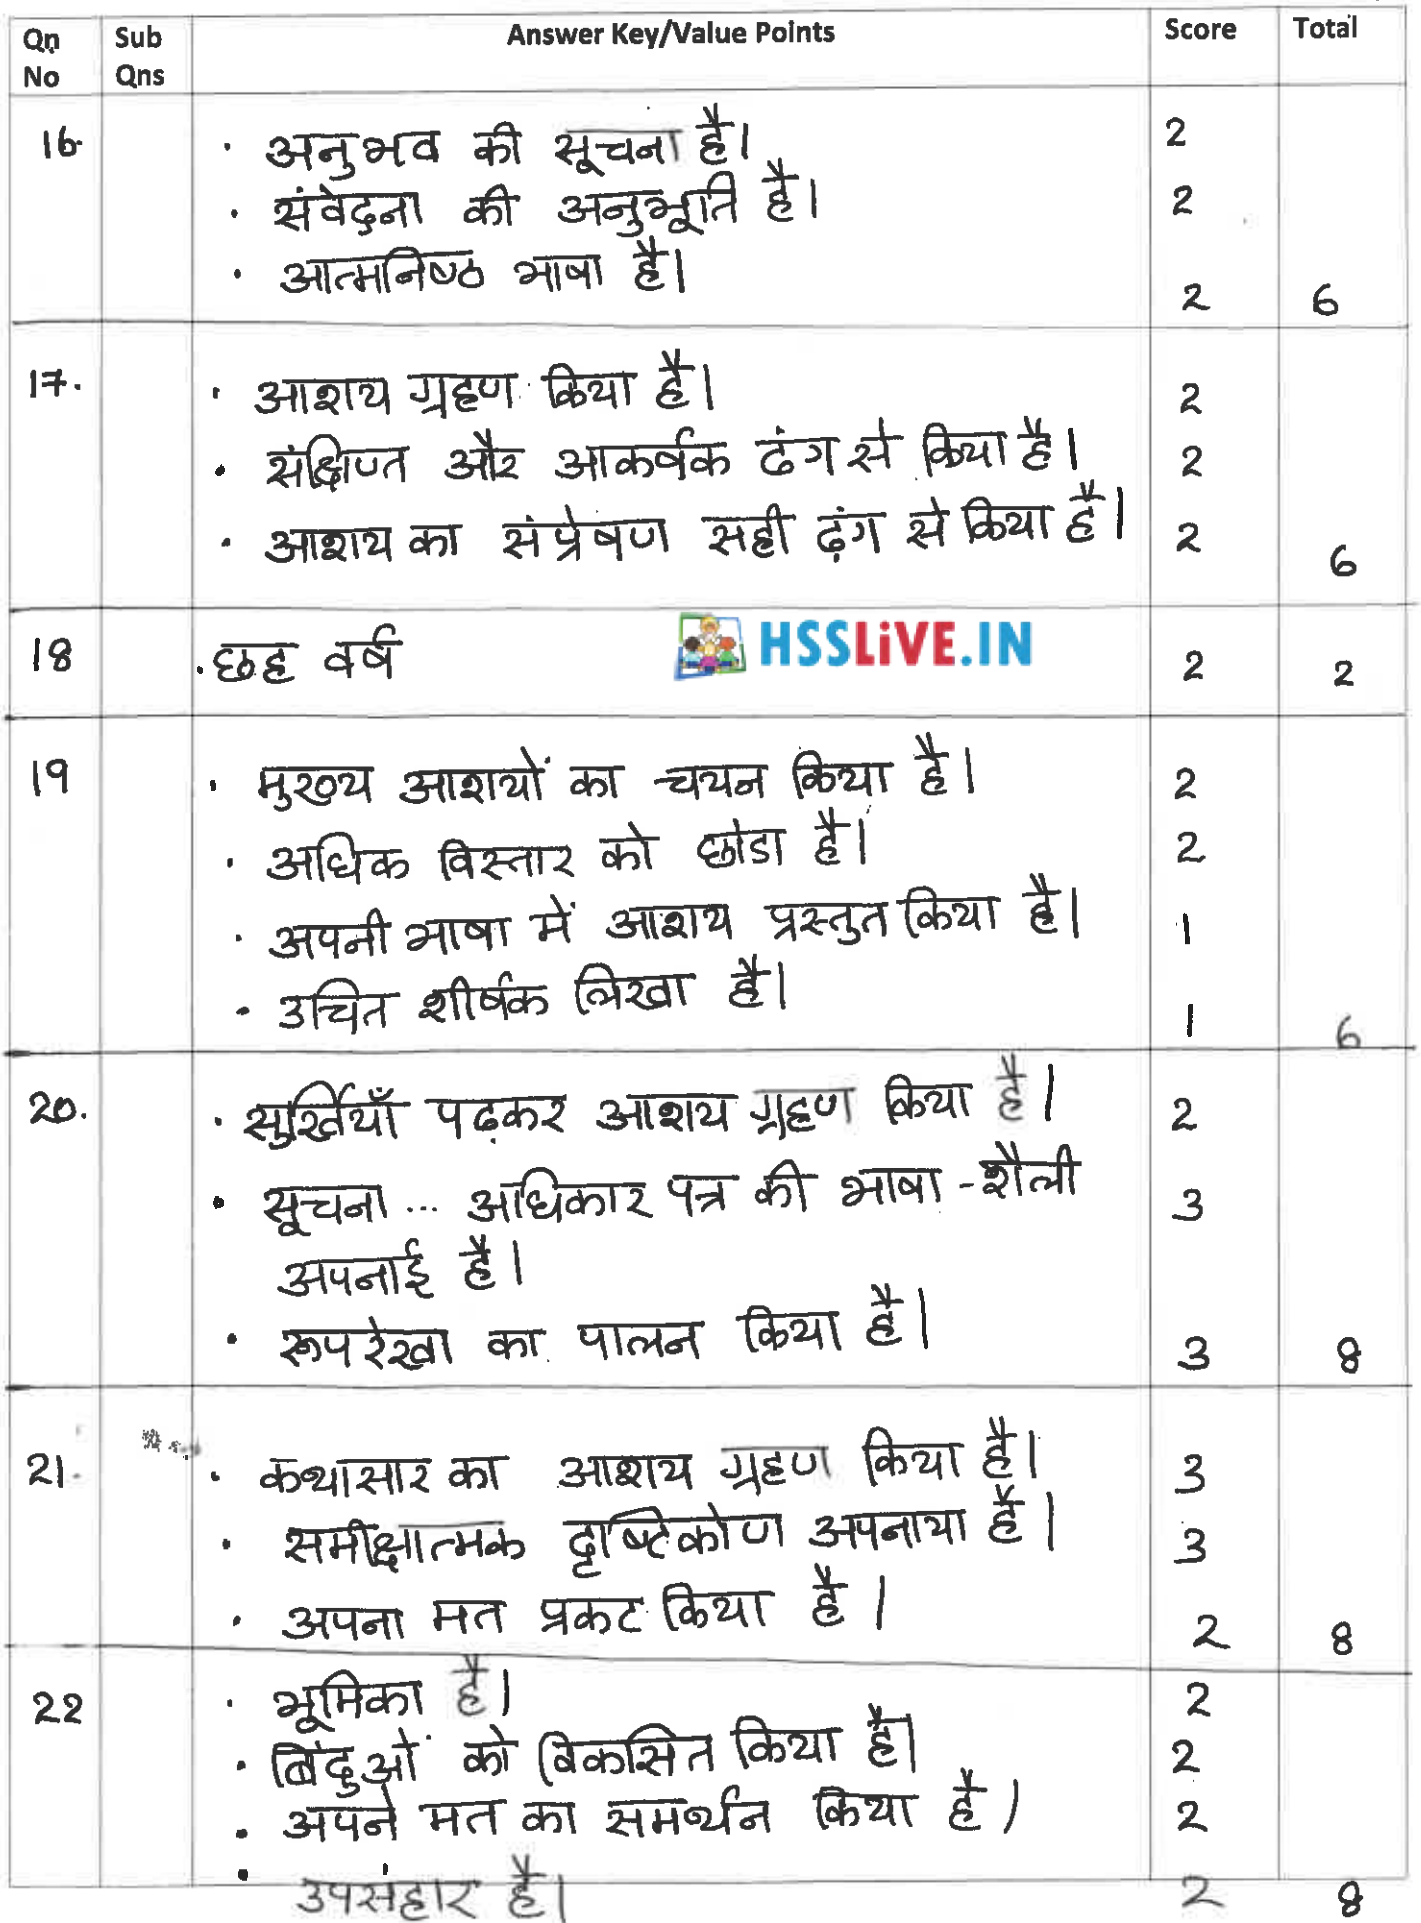 Qn No Sub Qns Answer Key/Value Points Score Total
16. · अनुभव की सूचना है। 2
· संवेदना की अनुभूति है। 2
· आत्मनिष्ठ भाषा है। 2 6
17. · आशय ग्रहण किया है। 2
· संक्षिप्त और आकर्षक ढंग से किया है। 2
· आशय का संप्रेषण सही ढ़ंग से किया है। 2 6
18 · छह वर्ष HSSLiVE.IN 2 2
19 · मुख्य आशयों का चयन किया है। 2
· अधिक विस्तार को छोडा है। 2
· अपनी भाषा में आशय प्रस्तुत किया है। 1
· उचित शीर्षक लिखा है। 1 6
20. · सुर्खियाँ पढ़कर आशय ग्रहण किया है। 2
· सूचना ... अधिकार पत्र की भाषा - शैली 3
अपनाई है।
· रूपरेखा का पालन किया है। 3 8
21. · कथासार का आशय ग्रहण किया है। 3
· समीक्षात्मक दृष्टिकोण अपनाया है। 3
· अपना मत प्रकट किया है। 2 8
22 · भूमिका है। 2
· बिंदुओं को विकसित किया है। 2
· अपने मत का समर्थन किया है। 2
· उपसंहार है। 2 8